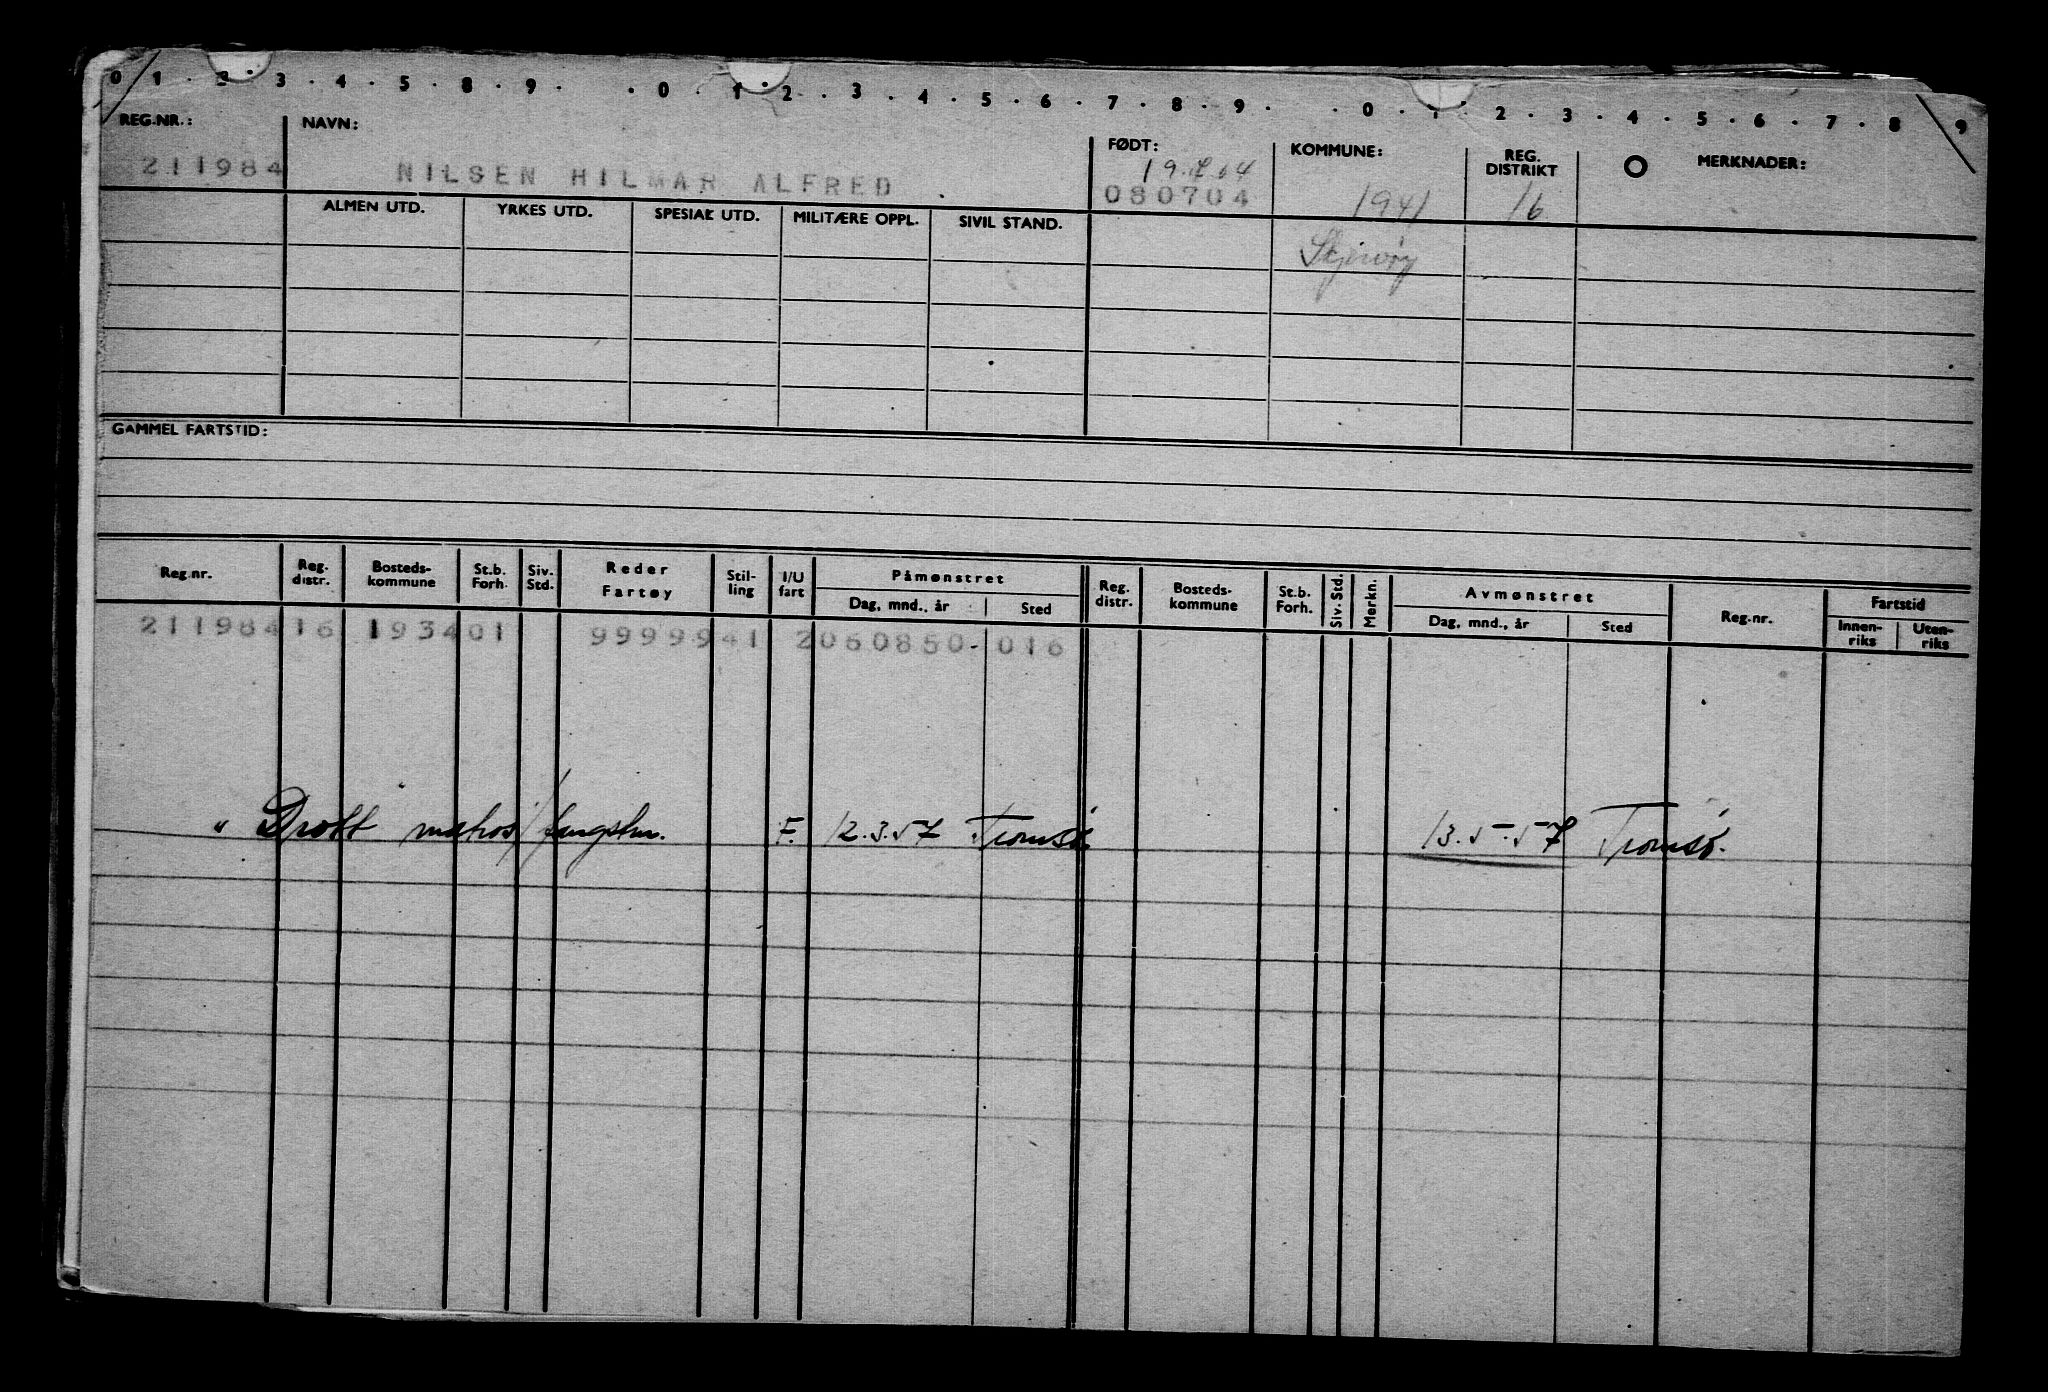 0 1 · 2 · 3 · 4 · 5 · 8 · 9 · · 0 · 1 · 2 · 3 · 4 · 5 · 6 · 7 · 8 · 9 · · 0 · 1 · 2 · 3 · 4 · 5 · 6 · 7 · 8 9
REG.NR.: NAVN: FØDT: KOMMUNE: REG. DISTRIKT O MERKNADER:
211984 NILSEN HILMAR ALFRED 080704 1941 16
ALMEN UTD. YRKES UTD. SPESIAL UTD. MILITÆRE OPPL. SIVIL STAND.
Skjervøy
GAMMEL FARTSTID:
Reg.nr. Reg. distr. Bosteds-kommune St.b. Forh. Siv. Std. Reder Fartøy Stil-ling I/U fart Påmønstret Dag, mnd., år Sted Reg. distr. Bosteds-kommune St.b. Forh. Siv. Std. Merkn. Avmønstret Dag, mnd., år Sted Reg.nr. Fartstid Innen-riks Uten-riks
211984 16 193401 9999941 2060850 016
" Drott matros/fangstm. F. 12.3.57 Tromsø. 13.5.57 Tromsø.